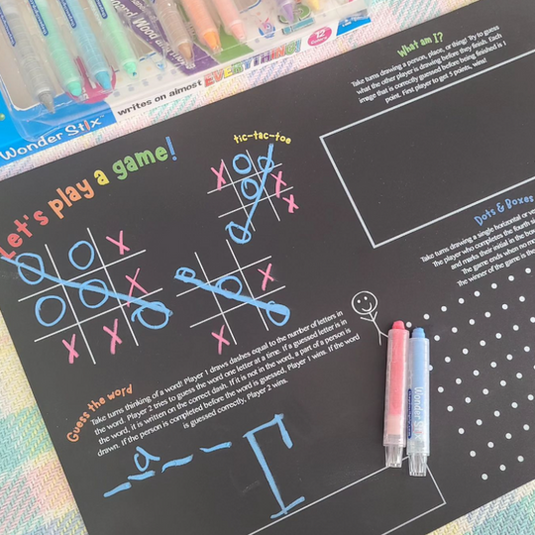 Wonder Stix
writes on almost EVERYTHING!
12
Let's play a game!
tic-tac-toe
X O O
O X
O X
O O X
O O X
X X O
O X
O
X O
What am I?
Take turns drawing a person, place, or thing! Try to guess
what the other player is drawing before they finish. Each
image that is correctly guessed before being finished is 1
point. First player to get 5 points, wins!
Dots & Boxes
Take turns drawing a single horizontal or ve
The player who completes the fourth si
and marks their initial in the bo
The game ends when no mo
The winner of the game is th
Guess the word
Take turns thinking of a word! Player 1 draws dashes equal to the number of letters in
the word. Player 2 tries to guess the word one letter at a time. If a guessed letter is in
the word, it is written on the correct dash. If it is not in the word, a part of a person is
drawn. If the person is completed before the word is guessed, Player 1 wins. If the word
is guessed correctly, Player 2 wins.
a